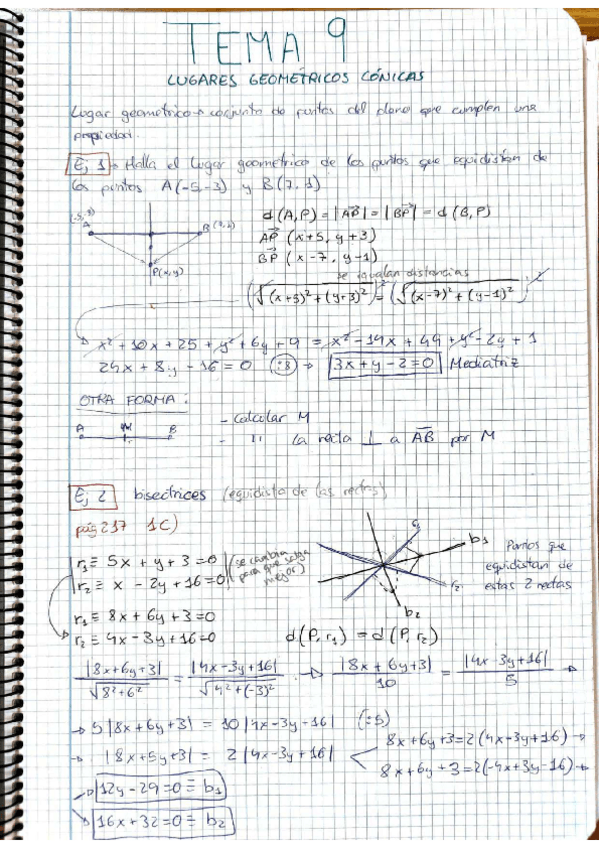 TEMA 9
LUGARES GEOMÉTRICOS CÓNICAS
Lugar geométrico → conjunto de puntos del plano que cumplen una
propiedad.
Ej 1 → Halla el lugar geométrico de los puntos que equidistan de
los puntos A(-5,-3) y B(7,1)
(-5,-3)
A
B (7,1)
P(x,y)
d(A,P) = |AP| = |BP| = d(B,P)
AP (x+5, y+3)
BP (x-7, y-1)
se igualan distancias
(√(x+5)² + (y+3)²)² = (√(x-7)² + (y-1)²)²
x² + 10x + 25 + y² + 6y + 9 = x² - 14x + 49 + y² - 2y + 1
24x + 8y - 16 = 0 (:8) → 3x + y - 2 = 0 Mediatriz
OTRA FORMA:
A M B
- Calcular M
- " la recta ⊥ a AB por M
Ej 2 bisectrices (equidista de las rectas)
pág 217 1c)
r₁ ≡ 5x + y + 3 = 0
r₂ ≡ x - 2y + 16 = 0
(se cambia para que salga mejor)
r₁ ≡ 8x + 6y + 3 = 0
r₂ ≡ 4x - 3y + 16 = 0
r₁
b₁
r₂
b₂
Puntos que
equidistan de
estas 2 rectas
d(P, r₁) = d(P, r₂)
|8x+6y+3| / √8²+6² = |4x-3y+16| / √4²+(-3)² → |8x+6y+3| / 10 = |4x-3y+16| / 5 →
→ 5|8x+6y+3| = 10|4x-3y-16| (:5)
→ |8x+5y+3| = 2|4x-3y+16|
8x+6y+3=2(4x-3y+16) →
8x+6y+3=2(-4x+3y-16) →
→ 12y - 29 = 0 ≡ b₁
→ 16x + 32 = 0 ≡ b₂